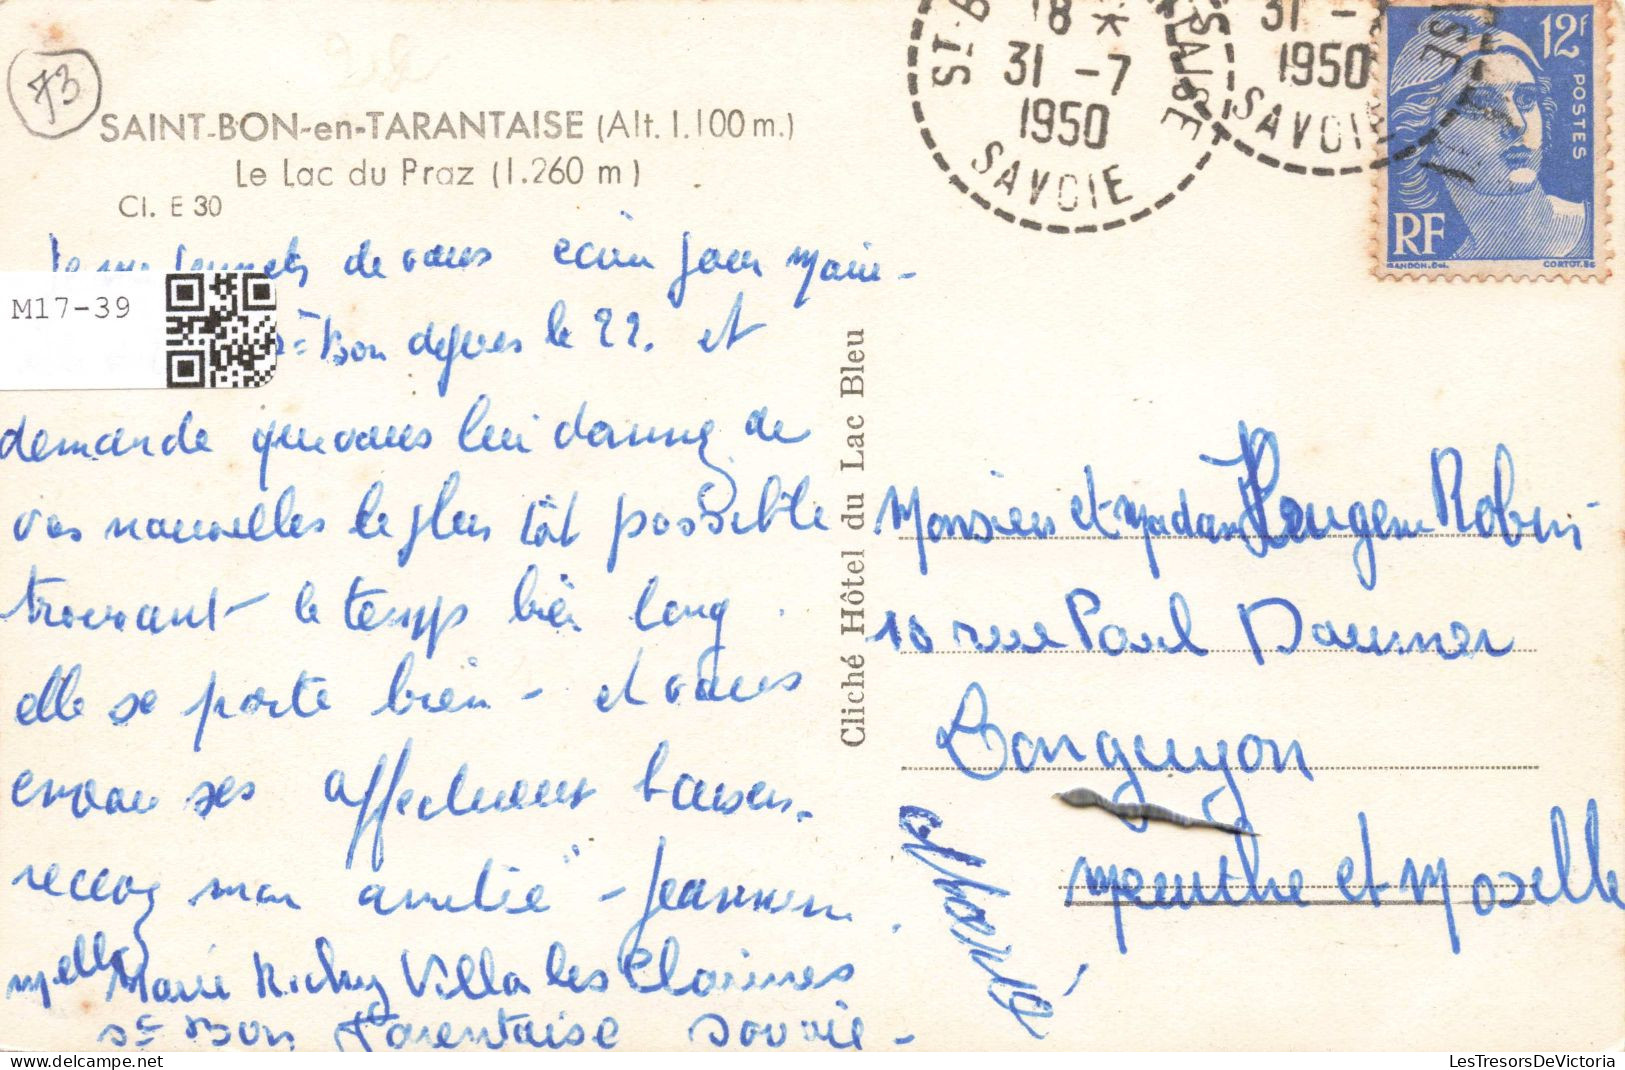 73
SAINT-BON-en-TARANTAISE (Alt. 1.100 m.)
Le Lac du Praz (1.260 m)
Cl. E 30
M17-39
Je me permets de vous écrire pour Marie-
St Bon depuis le 22. et
demande que vous lui donnez de
vos nouvelles le plus tôt possible
trouvant le temps bien long.
elle se porte bien - et vous
envoie ses affectueux baisers.
recevez mon amitié - Jeannine.
Melle Marie Richez Villa les Clarines
St Bon Tarentaise Savoie -
Cliché Hôtel du Lac Bleu
Marie
18 *
31 -7
1950
SAVOIE
31 -7
1950
SAVOIE
12F
POSTES
RF
GANDON.Del.
CORTOT.Sc
Monsieur et Madame Robin
10 rue Paul Doumer
Longuyon
Meurthe et Moselle
LesTresorsDeVictoria